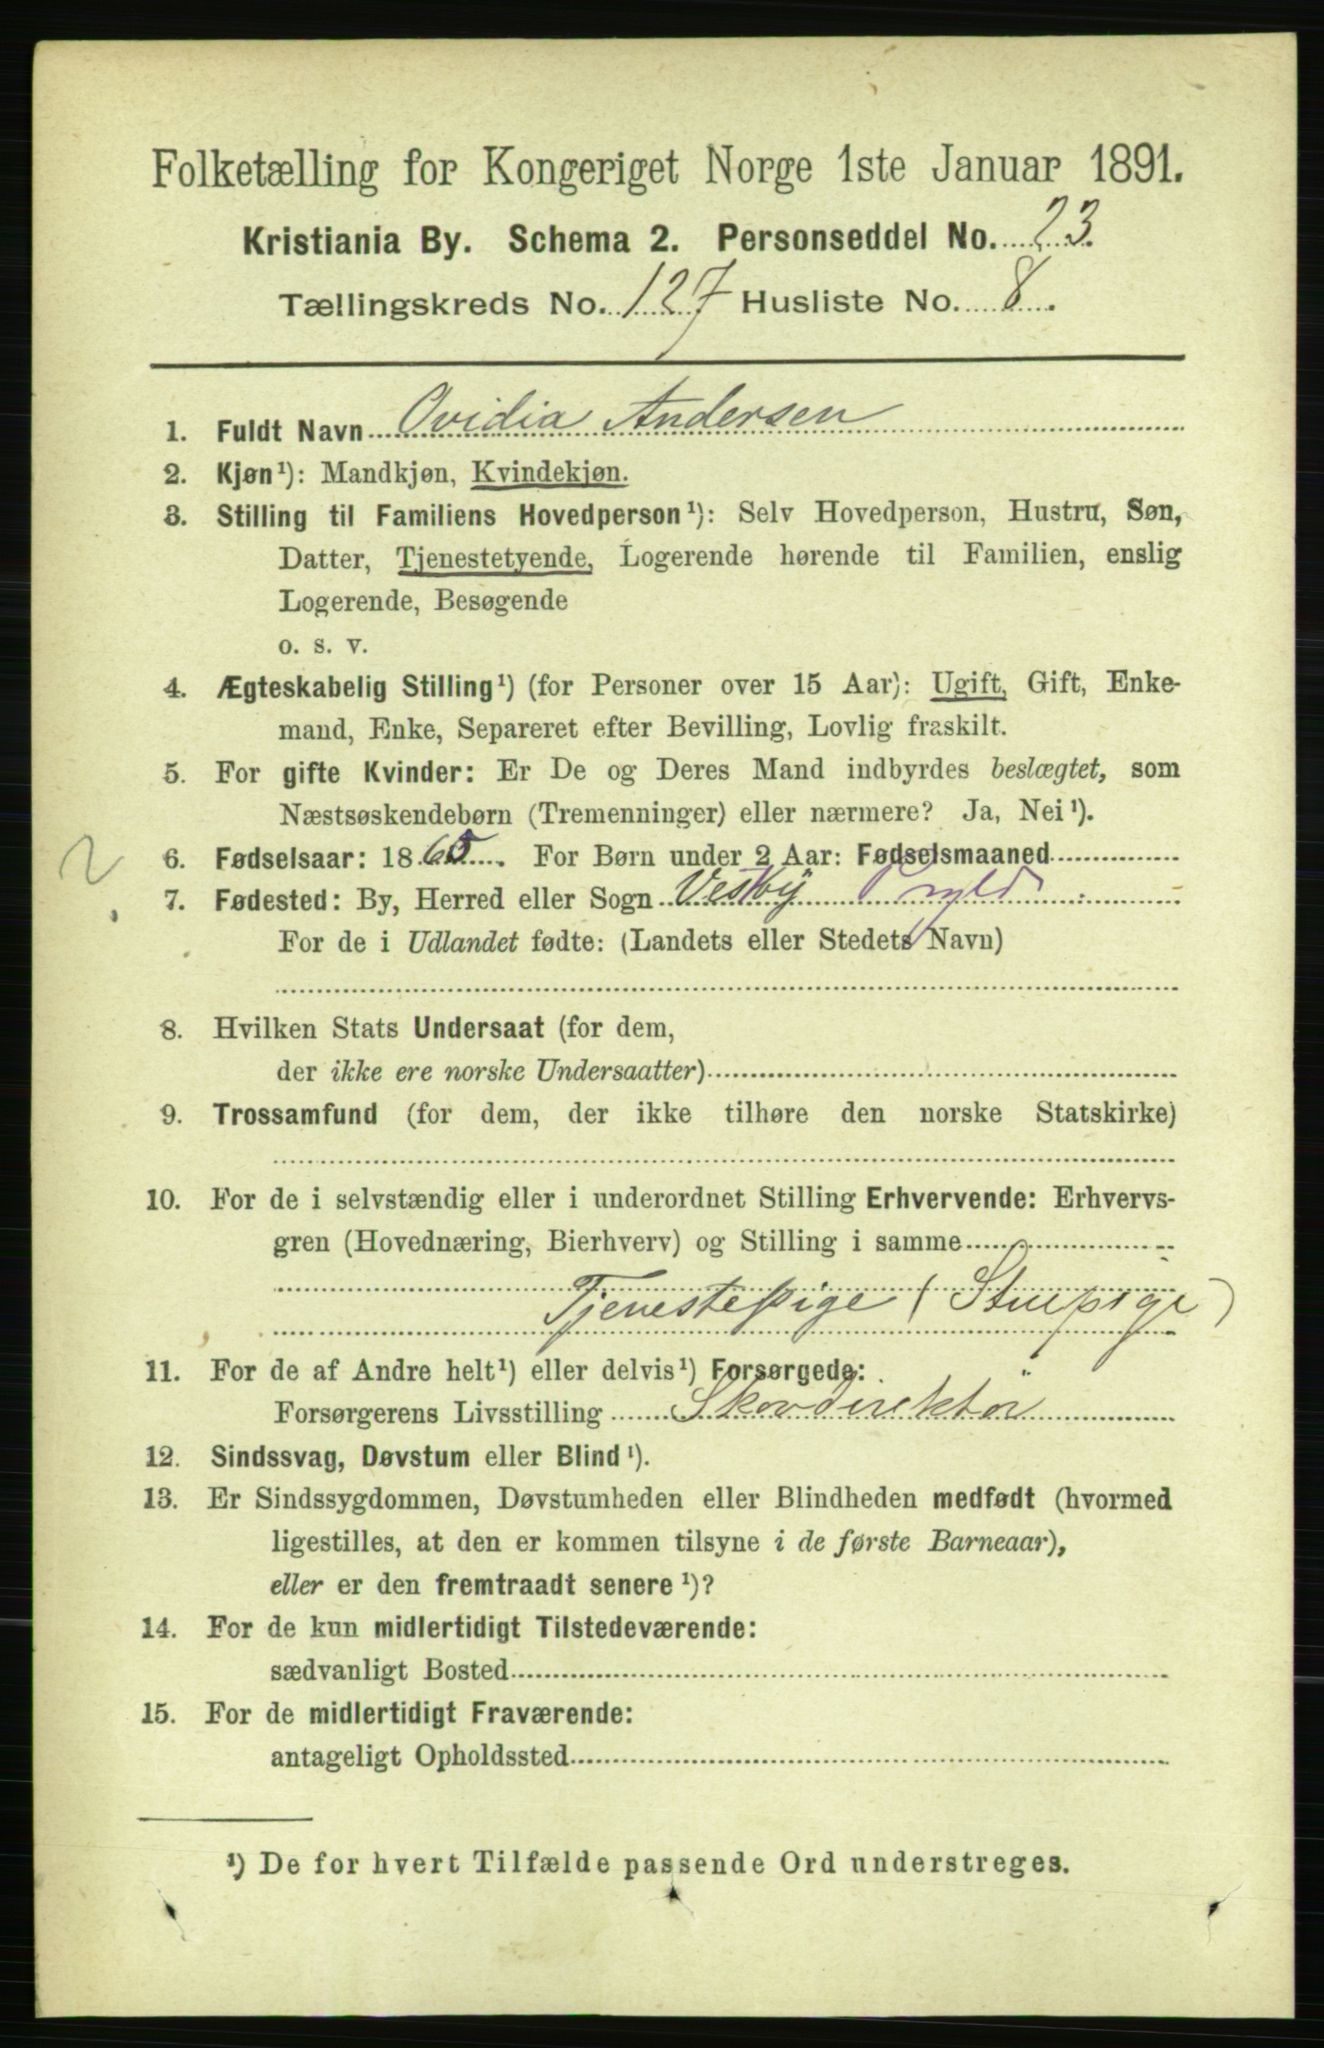 Folketælling for Kongeriget Norge 1ste Januar 1891.
Kristiania By. Schema 2. Personseddel No. 23.
Tællingskreds No. 127 Husliste No. 8.
1. Fuldt Navn Ovidia Andersen
2. Kjøn¹): Mandkjøn, Kvindekjøn.
3. Stilling til Familiens Hovedperson¹): Selv Hovedperson, Hustru, Søn,
Datter, Tjenestetyende, Logerende hørende til Familien, enslig
Logerende, Besøgende
o. s. v.
4. Ægteskabelig Stilling¹) (for Personer over 15 Aar): Ugift, Gift, Enke-
mand, Enke, Separeret efter Bevilling, Lovlig fraskilt.
5. For gifte Kvinder: Er De og Deres Mand indbyrdes beslægtet, som
Næstsøskendebørn (Tremenninger) eller nærmere? Ja, Nei¹).
2
6. Fødselsaar: 1865. For Børn under 2 Aar: Fødselsmaaned
7. Fødested: By, Herred eller Sogn Vestby
For de i Udlandet fødte: (Landets eller Stedets Navn)
8. Hvilken Stats Undersaat (for dem,
der ikke ere norske Undersaatter)
9. Trossamfund (for dem, der ikke tilhøre den norske Statskirke)
10. For de i selvstændig eller i underordnet Stilling Erhvervende: Erhvervs-
gren (Hovednæring, Bierhverv) og Stilling i samme
Tjenestepige (Stuepige)
11. For de af Andre helt¹) eller delvis¹) Forsørgede:
Forsørgerens Livsstilling Skovdirektör
12. Sindssvag, Døvstum eller Blind¹).
13. Er Sindssygdommen, Døvstumheden eller Blindheden medfødt (hvormed
ligestilles, at den er kommen tilsyne i de første Barneaar),
eller er den fremtraadt senere¹)?
14. For de kun midlertidigt Tilstedeværende:
sædvanligt Bosted
15. For de midlertidigt Fraværende:
antageligt Opholdssted
¹) De for hvert Tilfælde passende Ord understreges.